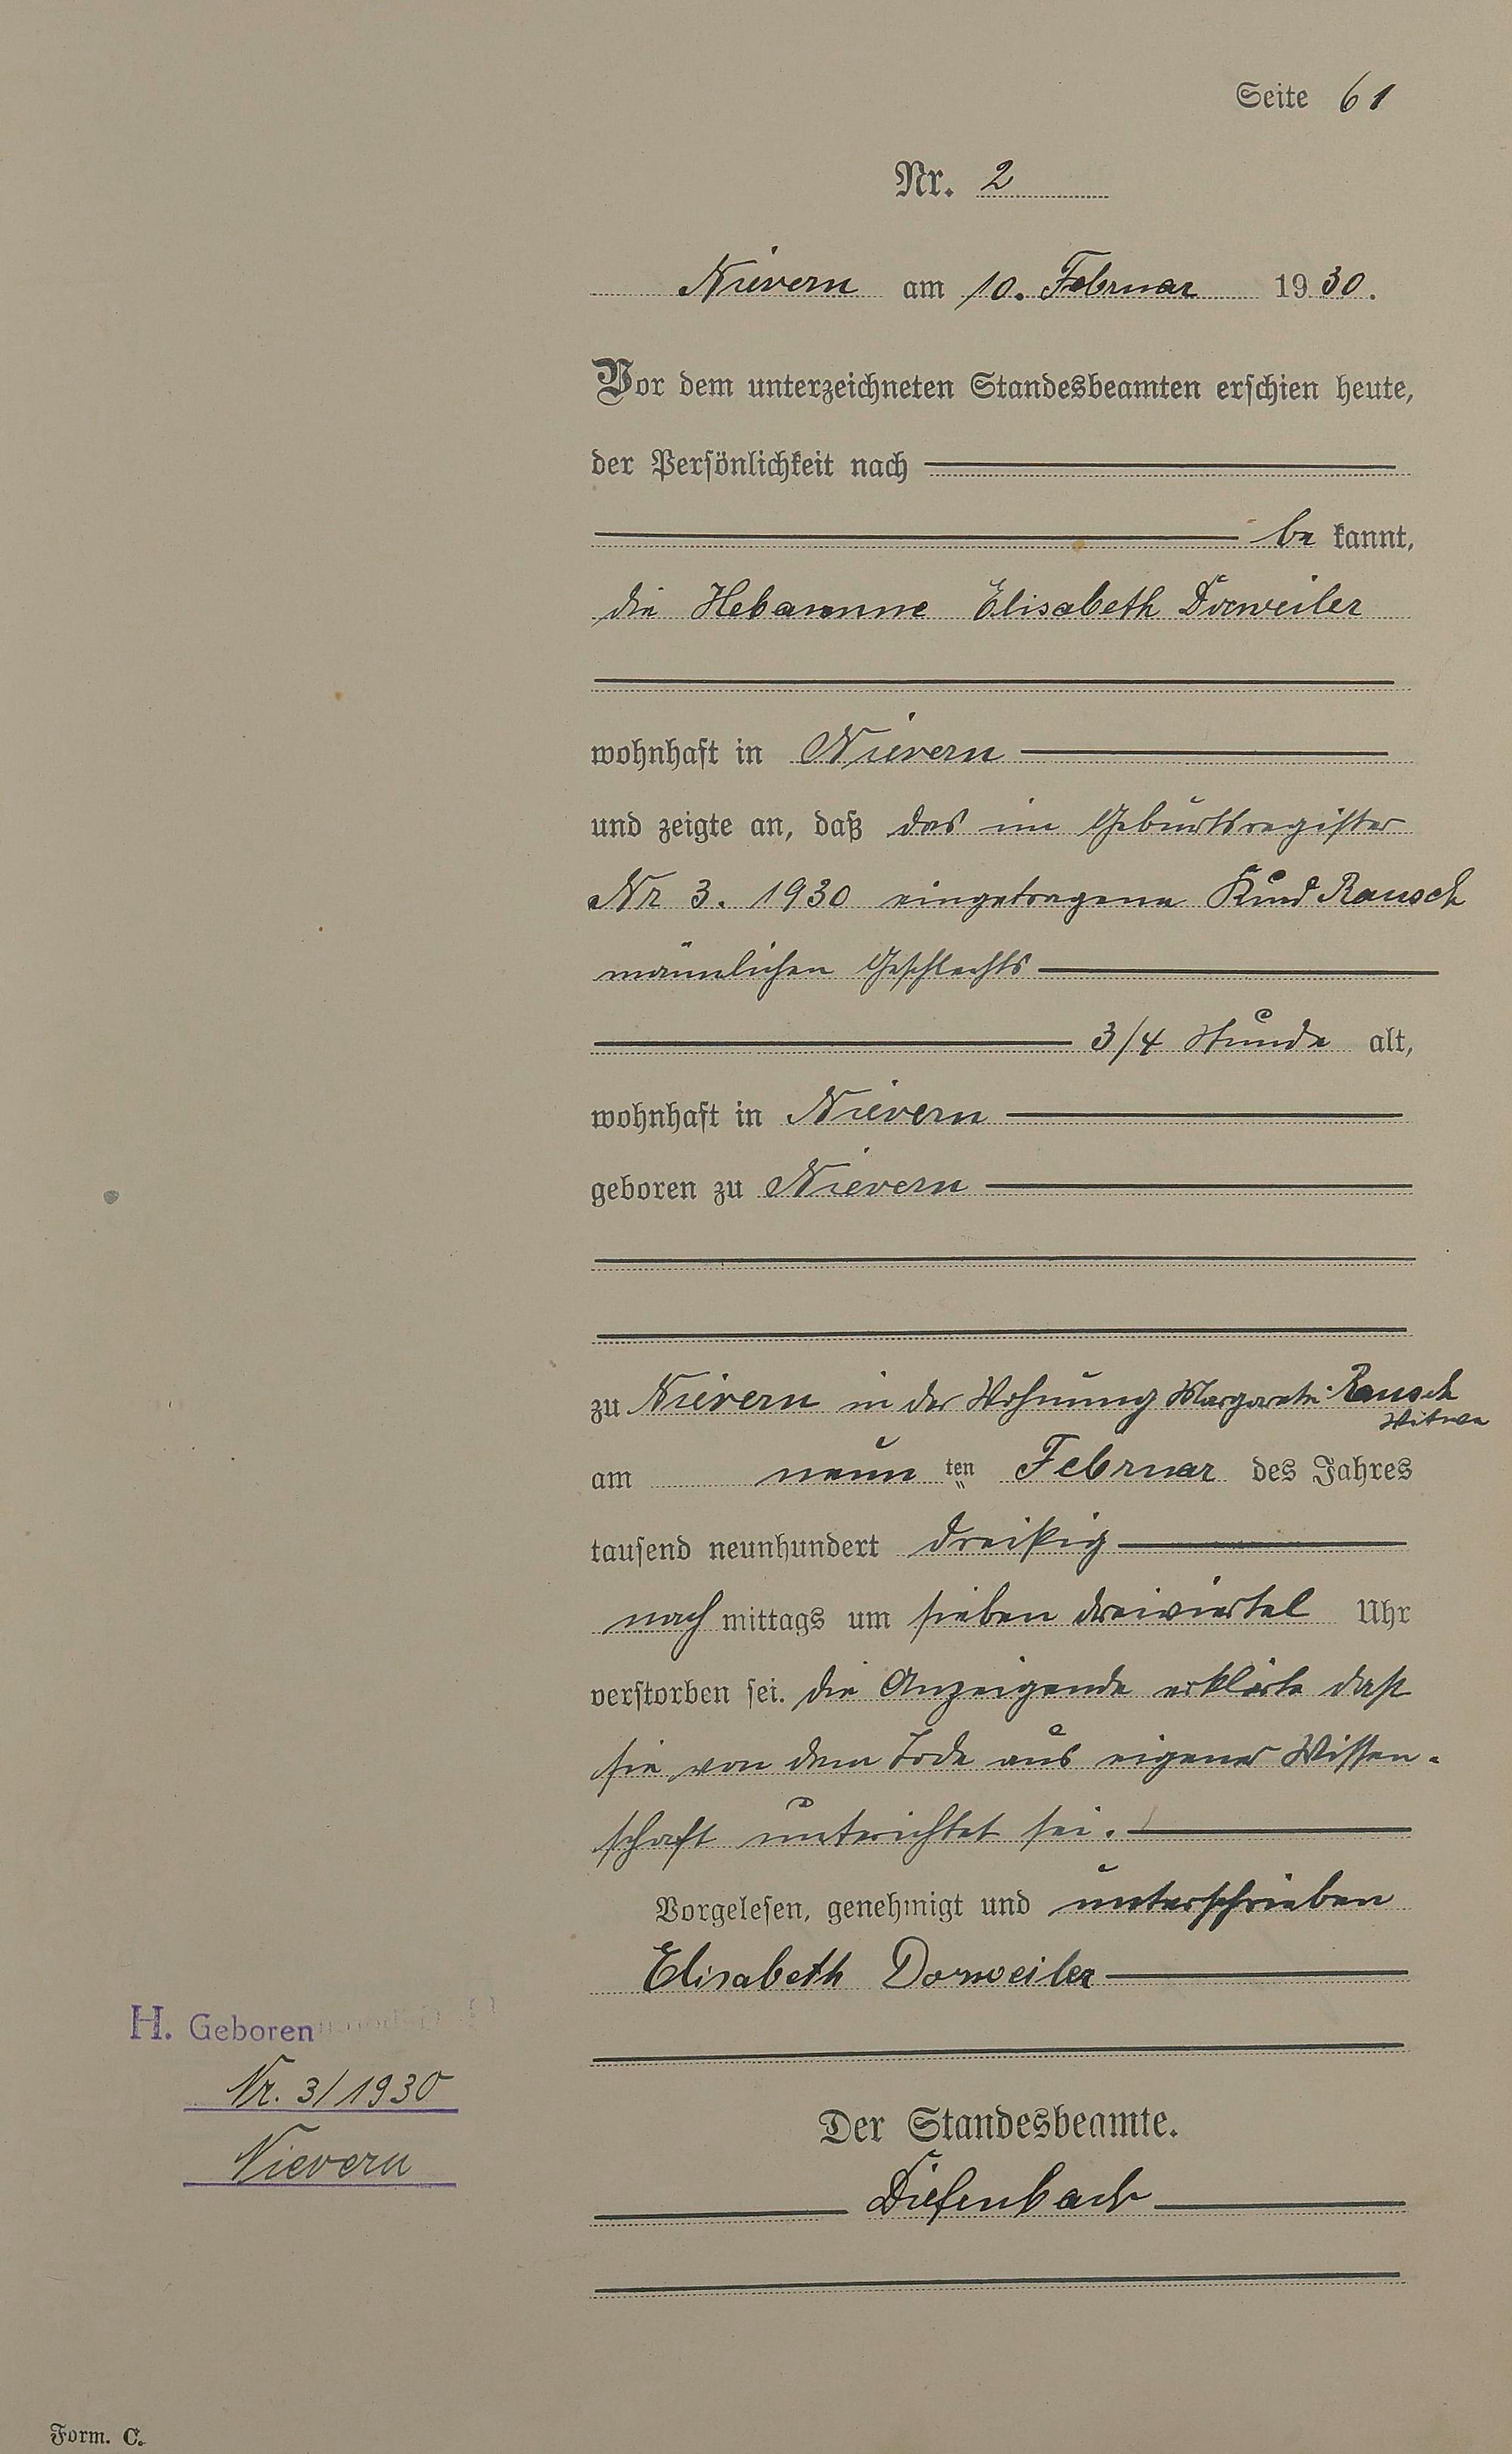 Seite 61
Nr. 2
Nievern am 10. Februar 1930.
Vor dem unterzeichneten Standesbeamten erschien heute,
der Persönlichkeit nach
be kannt,
die Hebamme Elisabeth Dorweiler
wohnhaft in Nievern
und zeigte an, daß das im Geburtsregister
Nr 3. 1930 eingetragene Kind Rausch
männlichen Geschlechts
3/4 Stunde alt,
wohnhaft in Nievern
geboren zu Nievern
zu Nievern in der Wohnung Margarete Rausch
Witwe
am neun ten Februar des Jahres
tausend neunhundert dreißig
nach mittags um sieben dreiviertel Uhr
verstorben sei. die Anzeigende erklärte daß
sie von dem Tode aus eigener Wissen-
schaft untrichtet sei.
Vorgelesen, genehmigt und unterschrieben
Elisabeth Dorweiler
H. Geboren
Nr. 3/1930
Nievern
Der Standesbeamte.
Diefenbach
Form. C.